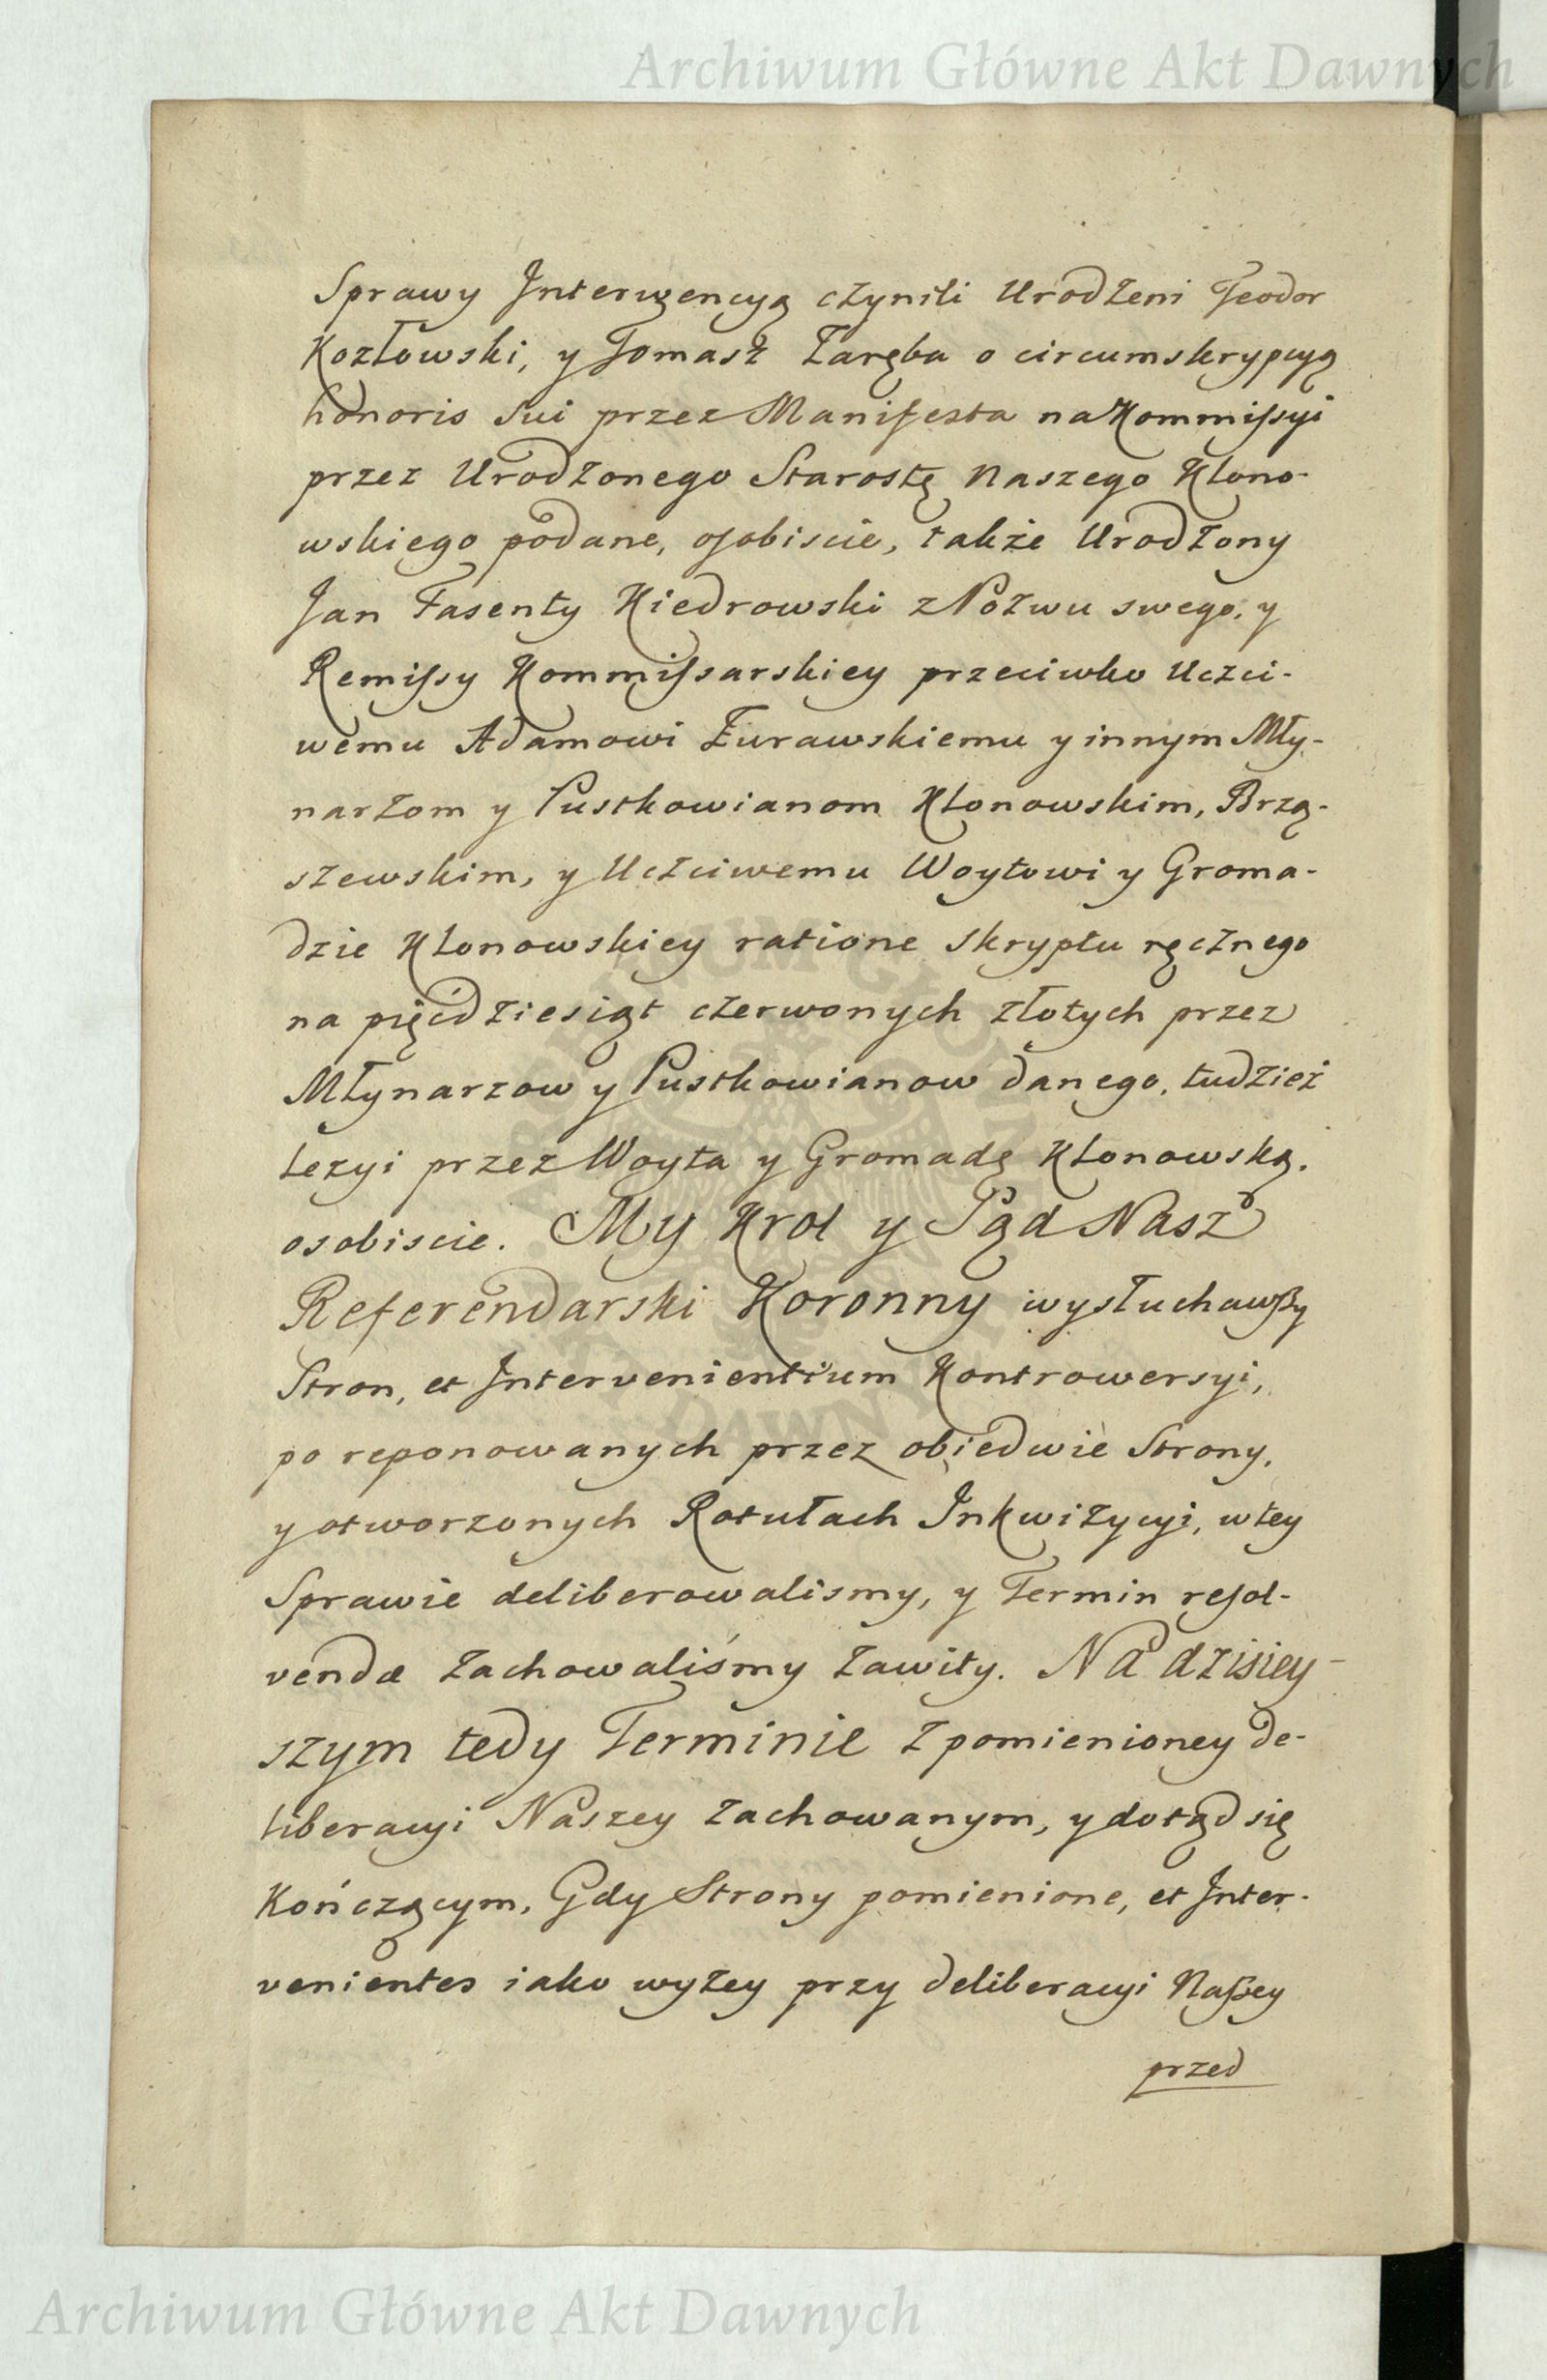 Archiwum Główne Akt Dawnych
Sprawy Interwencyą czynili Urodzeni Teodor
Kozłowski, y Tomasz Zaręba o circumskrypcyą
honoris sui przez Manifesta na Kommissyi
przez Urodzonego Starostę Naszego Klono-
wskiego podane, osobiscie, także Urodzony
Jan Fasenty Kiedrowski z Pozwu swego, y
Remissy Kommissarskiey przeciwko Uczci-
wemu Adamowi Żurawskiemu y innym Mły-
narzom y Pustkowianom Klonowskim, Brzą-
szewskim, y Uczciwemu Woytowi y Groma-
dzie Klonowskiey ratione skryptu ręcznego
na pięćdziesiąt czerwonych złotych przez
Młynarzow y Pustkowianow danego, tudzież
lezyi przez Woyta y Gromadę Klonowską,
osobiscie. My Krol y Sąd Nasz
Referendarski Koronny wysłuchawszy
Stron, et Intervenientium Kontrowersyi,
po reponowanych przez obiedwie Strony,
y otworzonych Rotułach Inkwizycyi, w tey
Sprawie deliberowalismy, y Termin resol-
vendæ zachowaliśmy zawity. Na dzisiey-
szym tedy Terminie z pomienioney de-
liberacyi Naszey zachowanym, y dotąd się
Kończącym, Gdy Strony pomienione, et Inter-
venientes iako wyzey przy deliberacyi Naszey
przed
Archiwum Główne Akt Dawnych